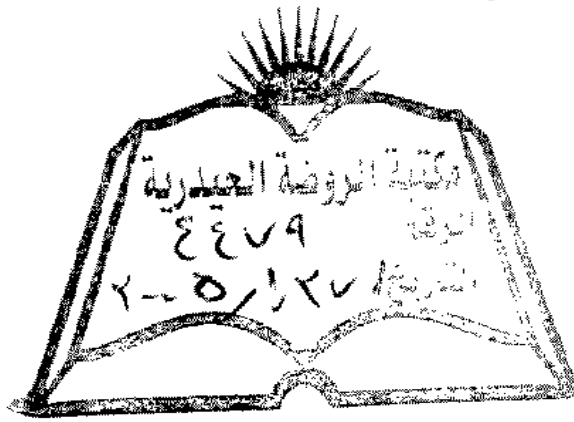 مكتبة الروضة الحيدرية
الرقم ٤٤٧٩
التاريخ ٢٧/١/٢٠٠٥